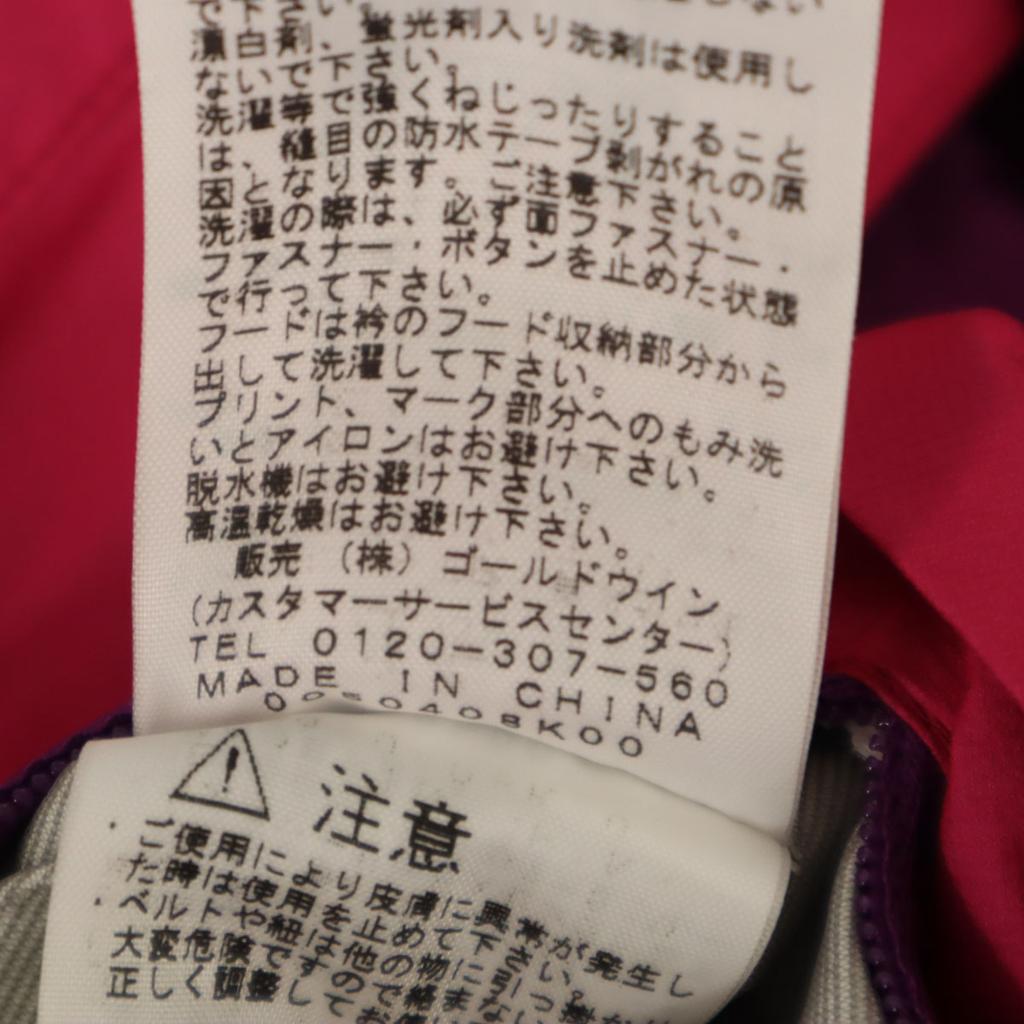 で下さい。
漂白剤、蛍光剤入り洗剤は使用し
ないで下さい。
洗濯等で強くねじったりすること
は、縫目の防水テープ剥がれの原
因となります。ご注意下さい。
洗濯の際は、必ず面ファスナー・
ファスナー・ボタンを止めた状態
で行って下さい。
フードは衿のフード収納部分から
出して洗濯して下さい。
プリント、マーク部分へのもみ洗
いとアイロンはお避け下さい。
脱水機はお避け下さい。
高温乾燥はお避け下さい。
販売 (株) ゴールドウイン
(カスタマーサービスセンター)
TEL 0120-307-560
MADE IN CHINA
注意
・ご使用により皮膚に異常が発生し
た時は使用を止めて下さい。
・ベルトや紐は他の物に引っ掛か
大変危険ですので絡まない
正しく調整して